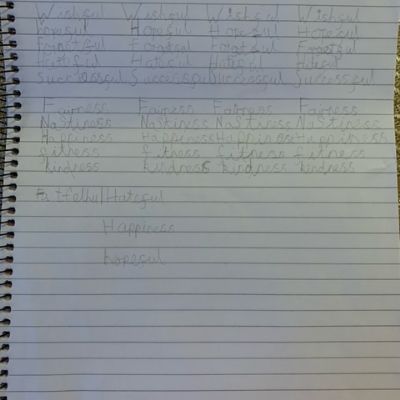 Wishful Wishful Wishful Wishful
Hopeful Hopeful Hopeful Hopeful
Forgetful Forgetful Forgetful
Hateful Hateful Hateful Hateful
Successful Successful Successful Successful
Fairness Fairness Fairness Fairness
Nastiness Nastiness Nastiness Nastiness
Happiness Happiness Happiness Happiness
fitness fitness fitness fitness
kindness kindness kindness kindness
Hateful
Happiness
hopeful